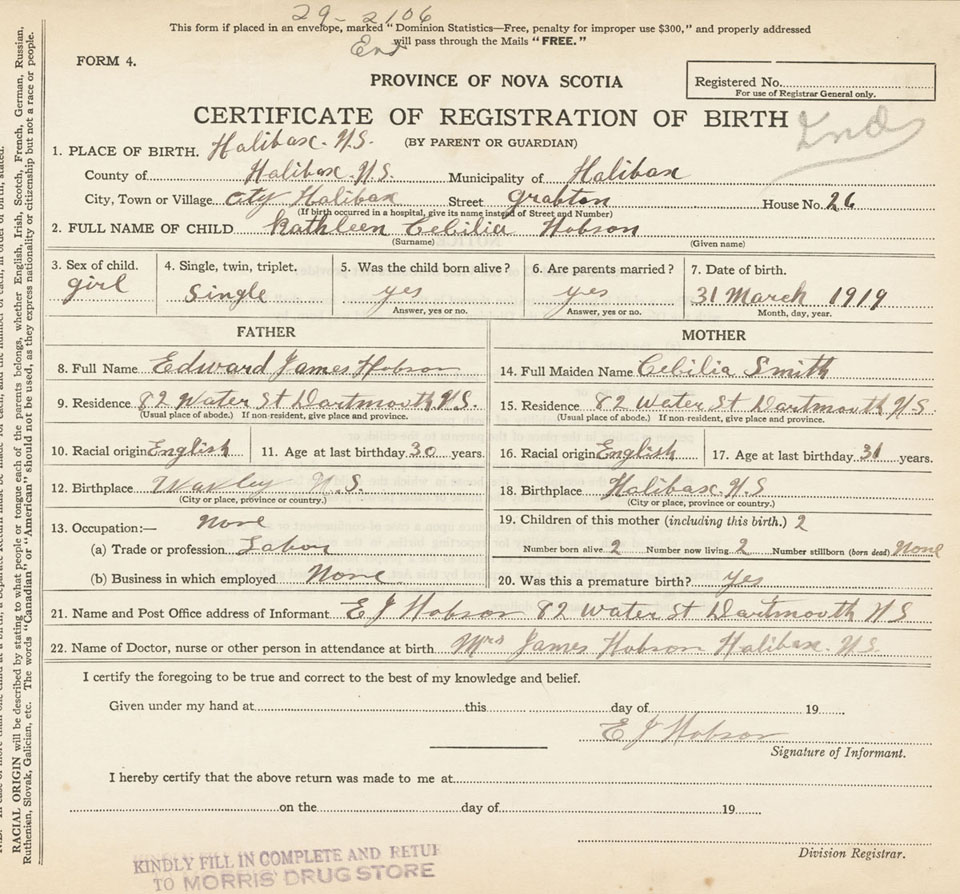 29-2106
This form if placed in an envelope, marked "Dominion Statistics—Free, penalty for improper use $300," and properly addressed
will pass through the Mails "FREE."
FORM 4.
PROVINCE OF NOVA SCOTIA
Registered No.
For use of Registrar General only.
CERTIFICATE OF REGISTRATION OF BIRTH
(BY PARENT OR GUARDIAN)
1. PLACE OF BIRTH. Halibax. N.S.
County of Halibax. N.S. Municipality of Halibax
City, Town or Village City Halibax Street Grabton House No. 26
(If birth occurred in a hospital, give its name instead of Street and Number)
2. FULL NAME OF CHILD Kathleen Cebilia Hobson
(Surname) (Given name)
3. Sex of child. 4. Single, twin, triplet. 5. Was the child born alive? 6. Are parents married? 7. Date of birth.
girl Single yes yes 31 March 1919
Answer, yes or no. Answer, yes or no. Month, day, year.
FATHER MOTHER
8. Full Name Edward James Hobson 14. Full Maiden Name Cebilia Smith
9. Residence 82 Water St Dartmouth N.S. 15. Residence 82 Water St Dartmouth N.S.
(Usual place of abode.) If non-resident, give place and province. (Usual place of abode.) If non-resident, give place and province.
10. Racial origin English 11. Age at last birthday 30 years. 16. Racial origin English 17. Age at last birthday 31 years.
12. Birthplace N.S. 18. Birthplace Halibax. N.S
(City or place, province or country.) (City or place, province or country.)
13. Occupation:— None 19. Children of this mother (including this birth.) 2
(a) Trade or profession Labor Number born alive 2 Number now living 2 Number stillborn (born dead) None
(b) Business in which employed None 20. Was this a premature birth? yes
21. Name and Post Office address of Informant E J Hobson 82 Water St Dartmouth N S
22. Name of Doctor, nurse or other person in attendance at birth Mrs James Hobson Halibax. N.S.
I certify the foregoing to be true and correct to the best of my knowledge and belief.
Given under my hand at this day of 19
E J Hobson
Signature of Informant.
I hereby certify that the above return was made to me at
on the day of 19
Division Registrar.
KINDLY FILL IN COMPLETE AND RETUR
TO MORRIS' DRUG STORE
RACIAL ORIGIN will be described by stating to what people or tongue each of the parents belongs, whether English, Irish, Scotch, French, German, Russian,
Ruthenian, Slovak, Galician, etc. The words "Canadian" or "American" should not be used, as they express nationality or citizenship but not a race or people.